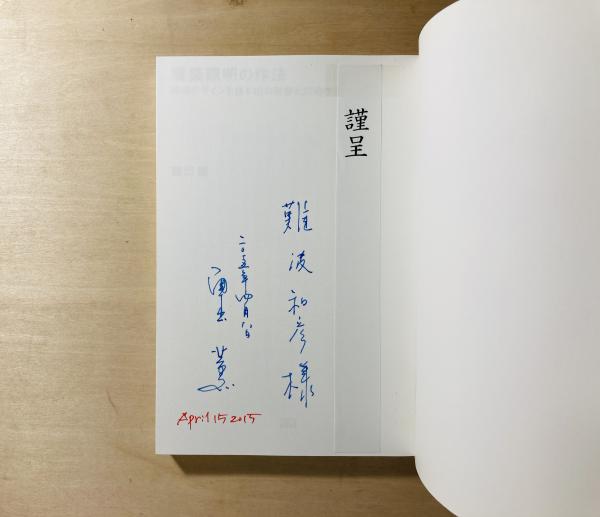 謹呈
難波和彦様
二〇一五年四月八日
面出 薫
April 15 2015